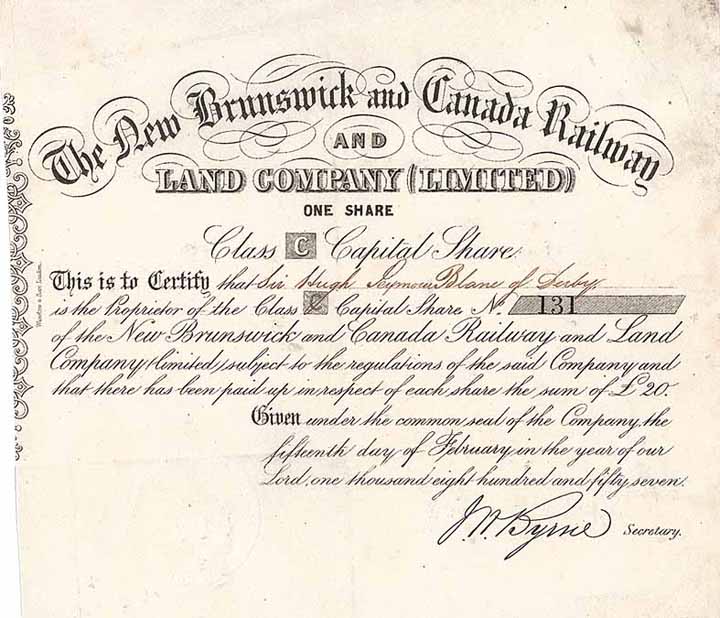 The New Brunswick and Canada Railway
AND
LAND COMPANY (LIMITED)
ONE SHARE
Class C Capital Share.
This is to Certify, that Sir Hugh Seymour Blane of Derby
is the Proprietor of the Class C Capital Share No. 131
of the New Brunswick and Canada Railway and Land
Company (limited) subject to the regulations of the said Company and
that there has been paid up in respect of each share the sum of £20.
Given under the common seal of the Company, the
fifteenth day of February, in the year of our
Lord, one thousand eight hundred and fifty seven.
J.W. Byrne Secretary.